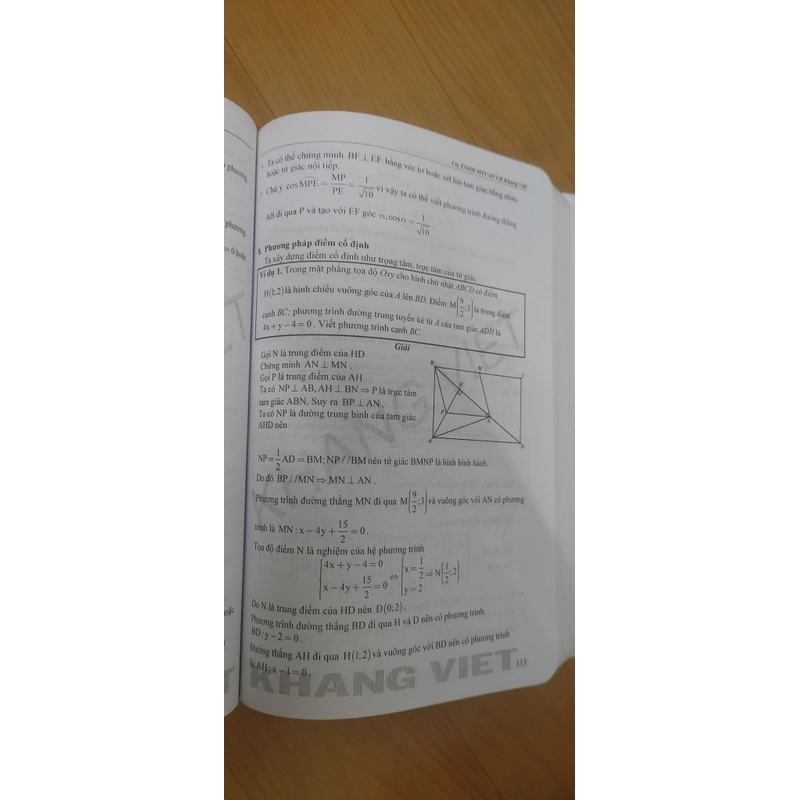 Cty TNHH MTV DVVH Khang Việt
Ta có thể chứng minh BF ⊥ EF bằng véc tơ hoặc xét hai tam giác bằng nhau
hoặc tứ giác nội tiếp.
Chú ý cos MPE = MP/PE = 1/√10 vì vậy ta có thể viết phương trình đường thẳng
AB đi qua P và tạo với EF góc α, cosα = 1/√10.
8. Phương pháp điểm cố định
Ta xây dựng điểm cố định như trọng tâm, trực tâm của tứ giác.
Ví dụ 1. Trong mặt phẳng tọa độ Oxy cho hình chữ nhật ABCD có điểm
H(1;2) là hình chiếu vuông góc của A lên BD. Điểm M(9/2;3) là trung điểm
cạnh BC; phương trình đường trung tuyến kẻ từ A của tam giác ADH là
4x + y − 4 = 0. Viết phương trình cạnh BC.
Giải
Gọi N là trung điểm của HD
Chứng minh AN ⊥ MN.
Gọi P là trung điểm của AH
Ta có NP ⊥ AB, AH ⊥ BN ⇒ P là trực tâm
tam giác ABN. Suy ra BP ⊥ AN.
Ta có NP là đường trung bình của tam giác
AHD nên
B M C
H
P N
A D
NP = 1/2 AD = BM; NP//BM nên tứ giác BMNP là hình bình hành.
Do đó BP//MN ⇒ MN ⊥ AN.
Phương trình đường thẳng MN đi qua M(9/2;3) và vuông góc với AN có phương
trình là MN: x − 4y + 15/2 = 0.
Tọa độ điểm N là nghiệm của hệ phương trình
{4x + y − 4 = 0; x − 4y + 15/2 = 0 ⇔ {x = 1/2; y = 2 ⇒ N(1/2;2)
Do N là trung điểm của HD nên D(0;2).
Phương trình đường thẳng BD đi qua H và D nên có phương trình
BD: y − 2 = 0.
Đường thẳng AH đi qua H(1;2) và vuông góc với BD nên có phương trình
là AH: x − 1 = 0.
313
KHANG VIET
KHANG VIET
phương
phương
= 0 hoặc
hoặc